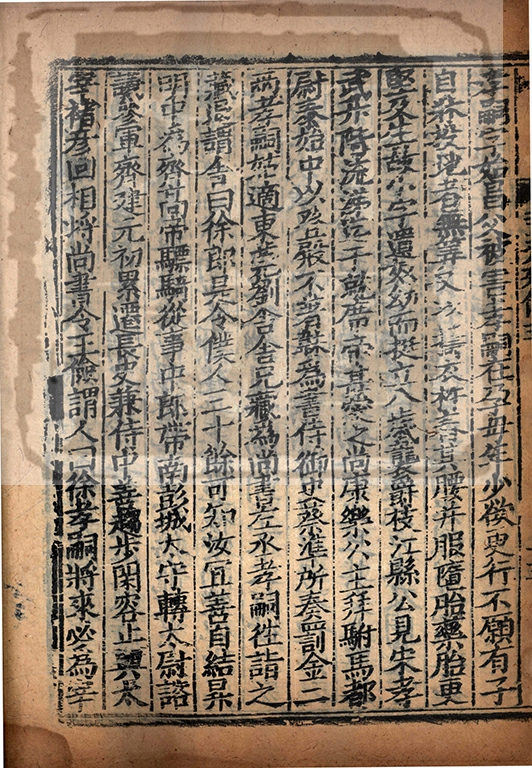 孝嗣字始昌父被害孝嗣在孕母年少欲更行不願有子
自牀投地者無筭又以擣衣杵舂其腰并服墮胎藥胎更
堅及生故小字遺奴幼而挺立八歲襲爵枝江縣公見宋孝
武升階流涕迄于就席帝甚愛之尚康樂公主拜駙馬都
尉泰始中以登殿不著韎為書侍御史蔡准所奏罰金二
兩孝嗣姑適東莞劉舍舍兄藏為尚書左丞孝嗣往詣之
藏退謂舍曰徐郎是令僕人三十餘可知汝宜善自結昇
明中為齊高帝驃騎從事中郎帶南彭城太守轉太尉諮
議參軍齊建元初累遷長史兼侍中善趨步閑容止與太
宰褚彥回相埒尚書令王儉謂人曰徐孝嗣將來必為宰